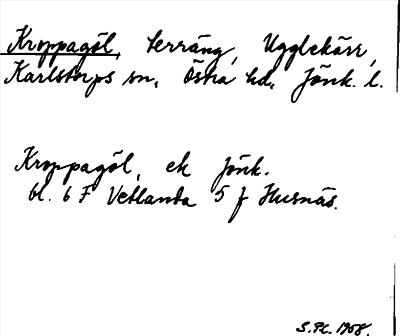 Kroppagöl, terräng, Ugglekärr,
Karlstorps sn, Östra hd, Jönk. l.
Kroppagöl, ek Jönk.
bl. 6 F Vetlanda 5 f Husnäs.
S.Pl. 1958.